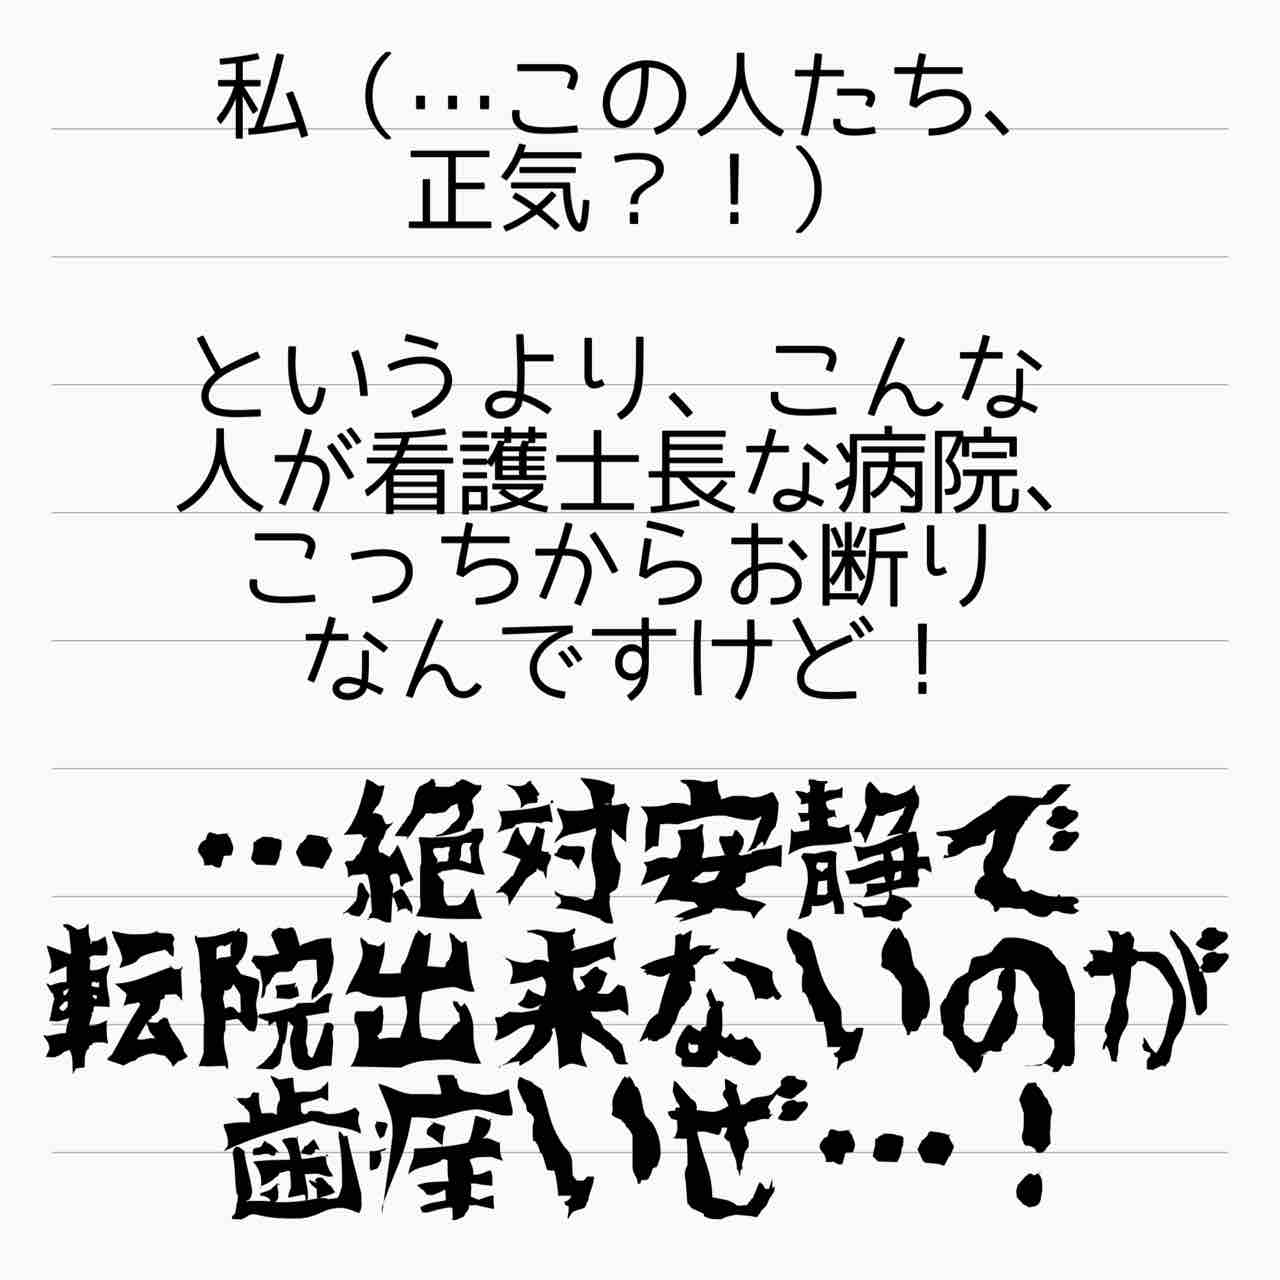 私（…この人たち、
正気？！）
というより、こんな
人が看護士長な病院、
こっちからお断り
なんですけど！
…絶対安静で
転院出来ないのが
歯痒いぜ…！